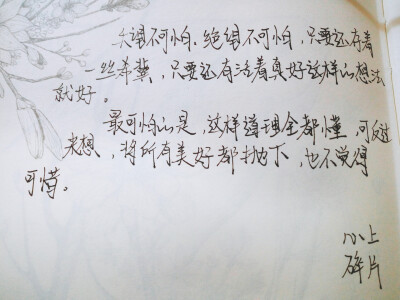 失望不可怕.绝望不可怕,只要还存着
一丝希冀,只要还有活着真好这样的想法
就好。
最可怕的是,这样道理全都懂,可反过
来想,将所有美好都抛下,也不觉得
可惜。
以上
碎片